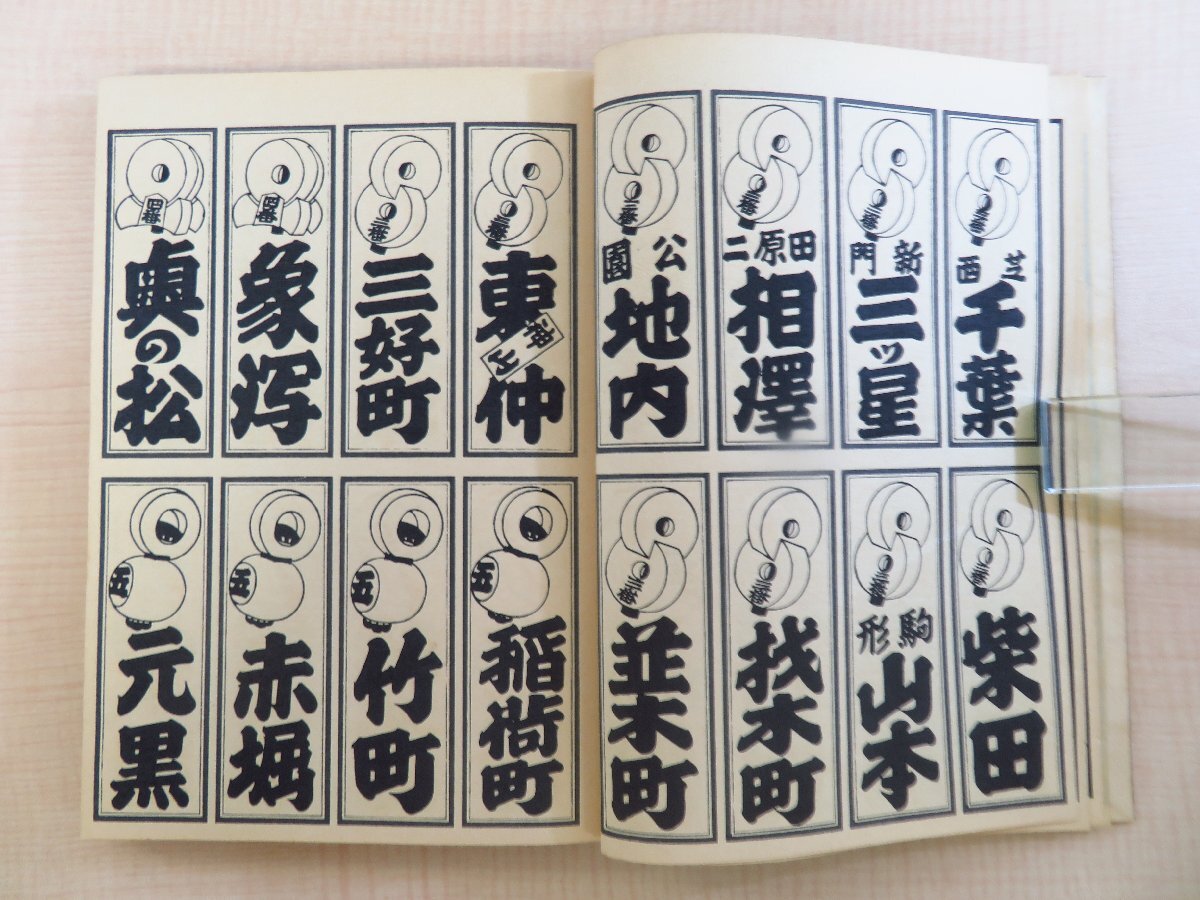 三番 芝西 千葉
三番 新門 三ッ星
三番 田原二 相澤
三番 公園 地内
三番 柴田
三番 駒形 山本
三番 材木町
三番 並木町
三番 東仲
三番 三好町
四番 象潟
四番 奥の松
五 稲荷町
五 竹町
五 赤堀
五 元黒